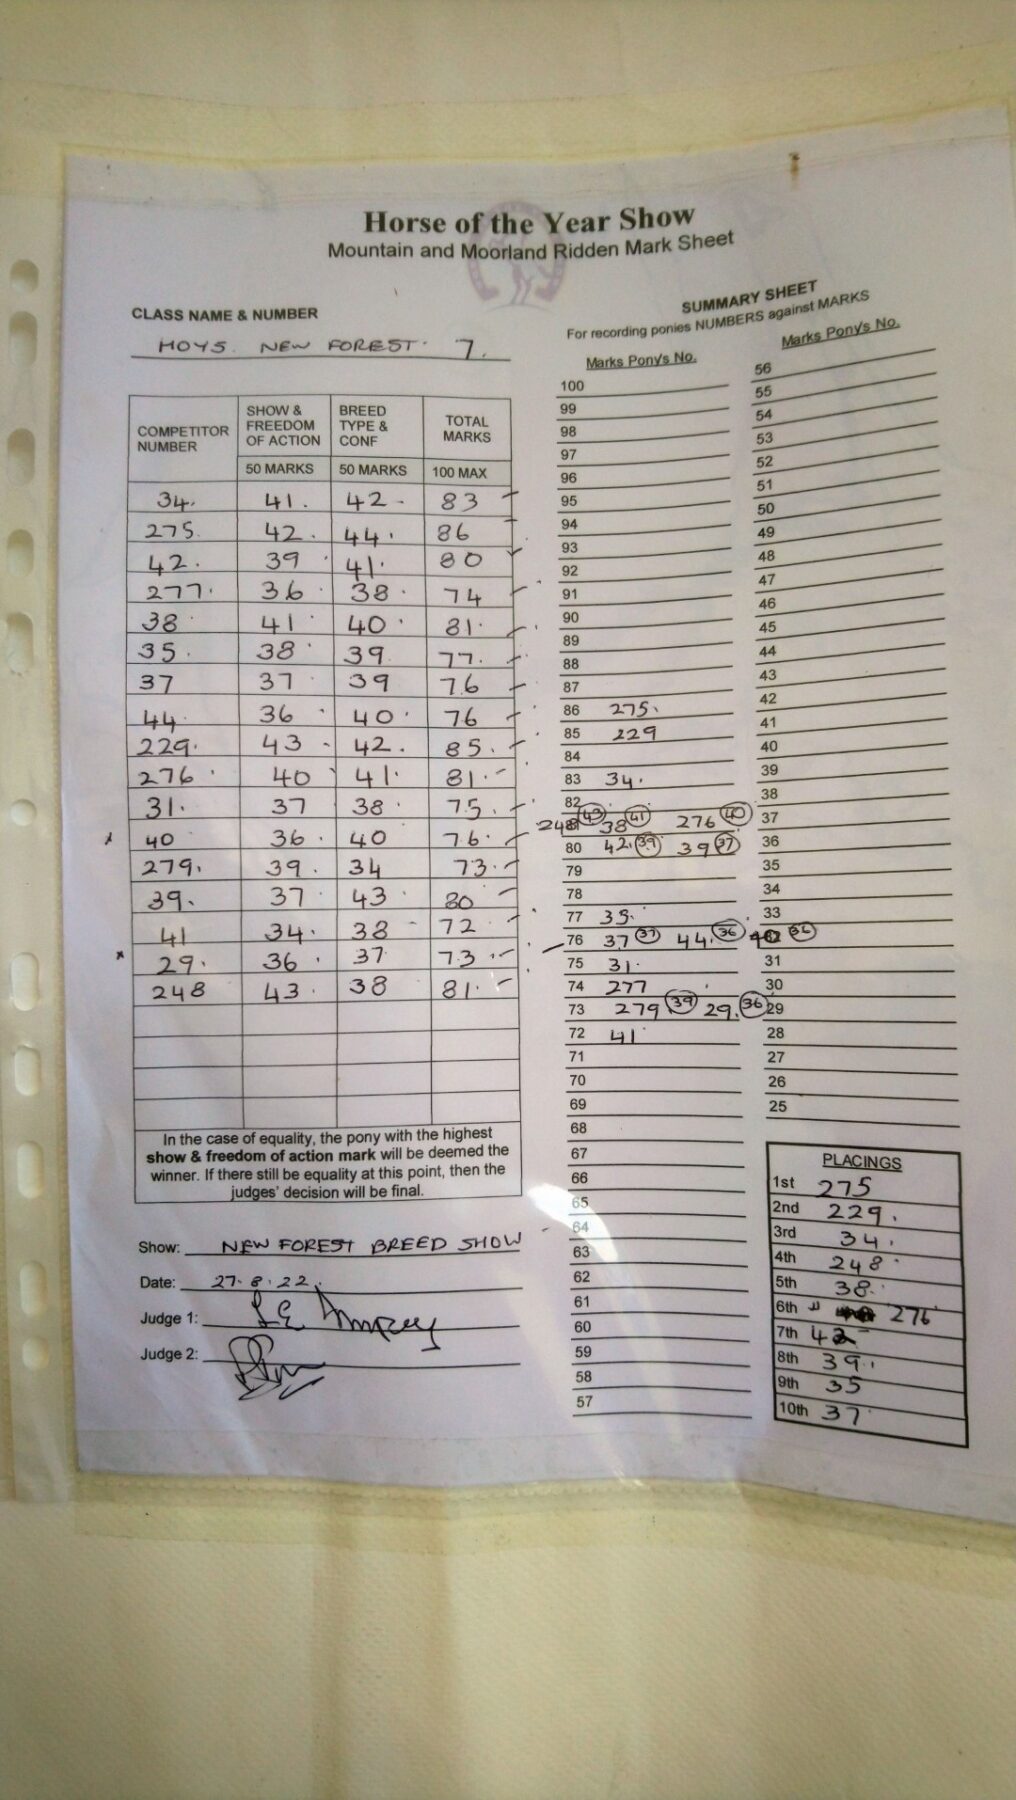 Horse of the Year Show
Mountain and Moorland Ridden Mark Sheet
CLASS NAME & NUMBER
HOYS. NEW FOREST. 7.
COMPETITOR NUMBER SHOW & FREEDOM OF ACTION BREED TYPE & CONF TOTAL MARKS
50 MARKS 50 MARKS 100 MAX
34. 41. 42. 83
275. 42. 44. 86
42. 39 41. 80
277. 36 38. 74
38 41 40 81.
35. 38 39 77.
37 37 39 76
44 36 40. 76
229. 43 42. 85.
276 40 41. 81.
31. 37 38 75.
40 36. 40 76.
279. 39. 34 73.
39. 37 43 80
41 34. 38 72
29. 36 37 73.
248 43. 38 81.
In the case of equality, the pony with the highest
show & freedom of action mark will be deemed the
winner. If there still be equality at this point, then the
judges' decision will be final.
Show: NEW FOREST BREED SHOW
Date: 27.8.22.
Judge 1:
Judge 2:
SUMMARY SHEET
For recording ponies NUMBERS against MARKS
Marks Pony's No.
100
99
98
97
96
95
94
93
92
91
90
89
88
87
86 275.
85 229
84
83 34.
82
248 43 38 41 276 40
80 42. 39 39 37
79
78
77 35.
76 37 37 44. 36 36
75 31.
74 277
73 279 39 29. 36
72 41
71
70
69
68
67
66
65
64
63
62
61
60
59
58
57
Marks Pony's No.
56
55
54
53
52
51
50
49
48
47
46
45
44
43
42
41
40
39
38
37
36
35
34
33
31
30
29
28
27
26
25
PLACINGS
1st 275
2nd 229.
3rd 34.
4th 248
5th 38.
6th 276
7th 42
8th 39.
9th 35
10th 37